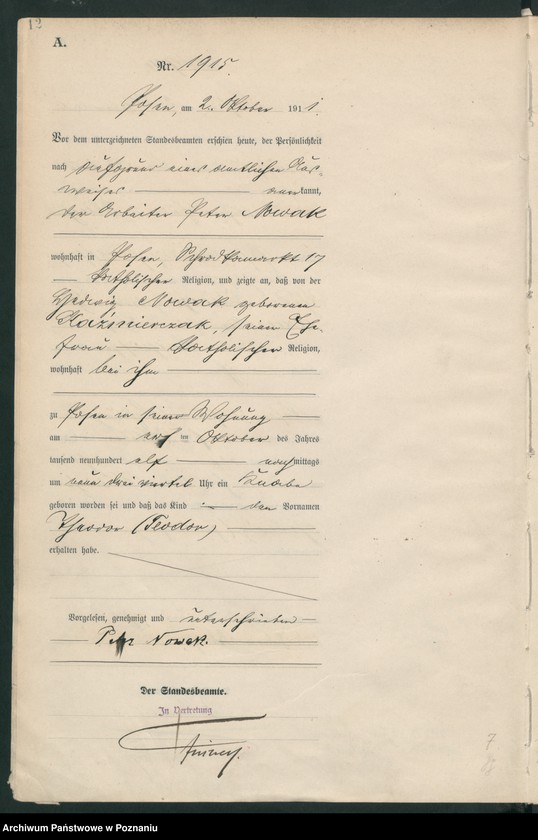 12
A.
Nr. 1915.
Posen, am 2. Oktober 1911.
Vor dem unterzeichneten Standesbeamten erschien heute, der Persönlichkeit
nach auf Grund eines amtlichen Aus-
weises anerkannt,
der Arbeiter Peter Nowak
wohnhaft in Posen, Schrodkamarkt 17
katholischer Religion, und zeigte an, daß von der
Hedwig Nowak geborenen
Kaźmierczak, seiner Ehe-
frau katholischer Religion,
wohnhaft bei ihm
zu Posen in seiner Wohnung
am ten Oktober des Jahres
tausend neunhundert elf nachmittags
um neun drei viertel Uhr ein Knabe
geboren worden sei und daß das Kind den Vornamen
Theodor (Teodor)
erhalten habe.
Vorgelesen, genehmigt und unterschrieben
Peter Nowak.
Der Standesbeamte.
In Vertretung
7
Archiwum Państwowe w Poznaniu